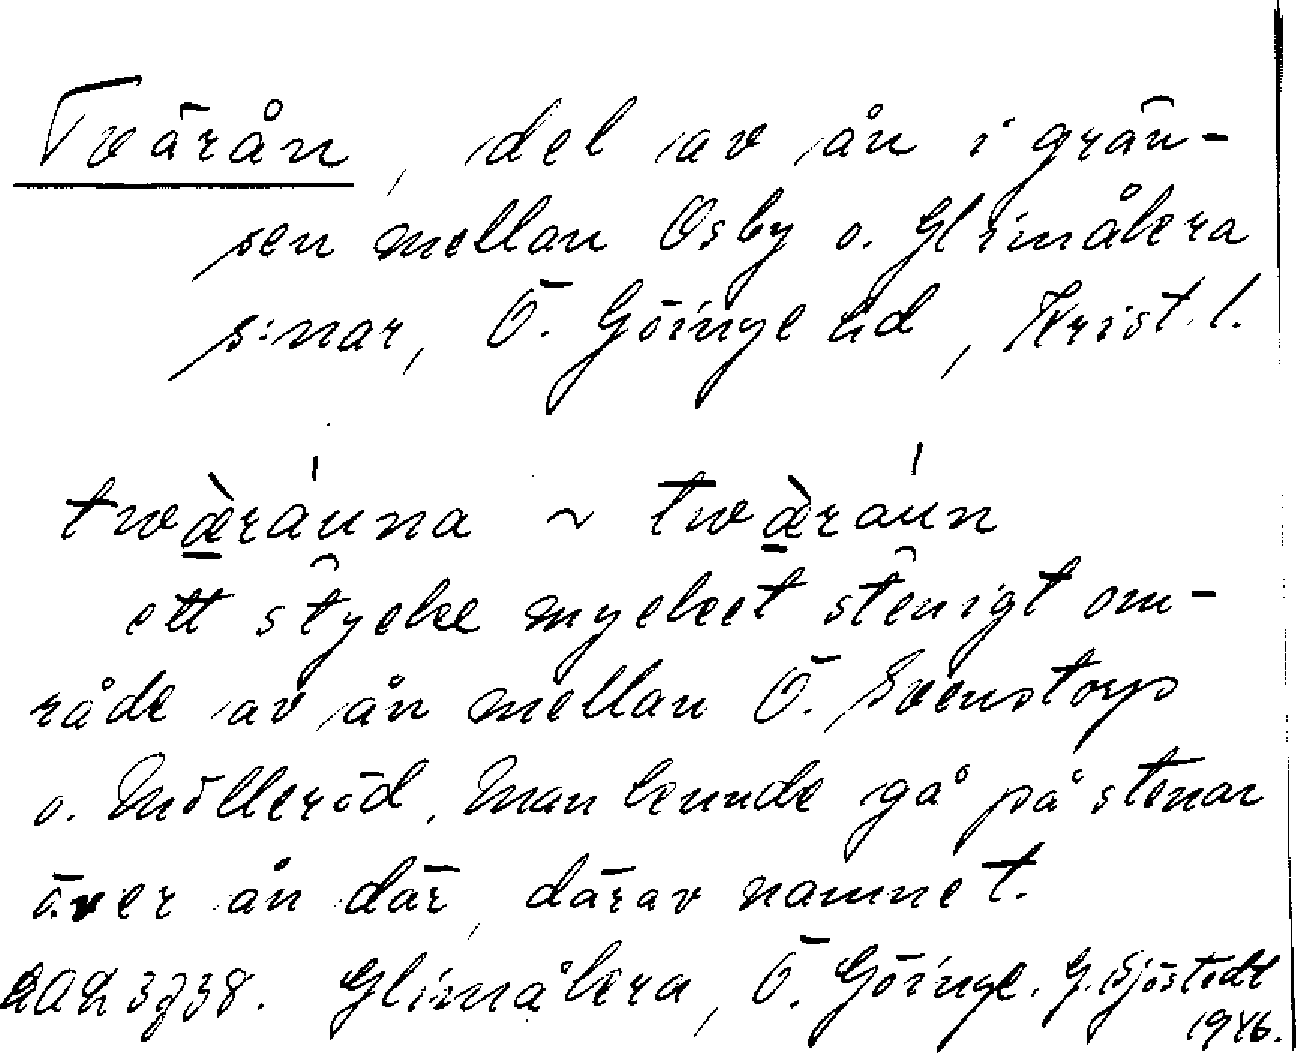 Tvärån, del av ån i grän-
sen mellan Osby o. Glimåkra
s:nar, Ö. Göinge hd, Krist. l.
twæ̀ráuna ~ twæ̀ráun
ett stycke mycket stenigt om-
råde av ån mellan Ö. Svenstorp
o. Mölleröd. Man kunde gå på stenar
över ån där, därav namnet.
3738. Glimåkra, Ö. Göinge. G. Sjöstedt
1946.